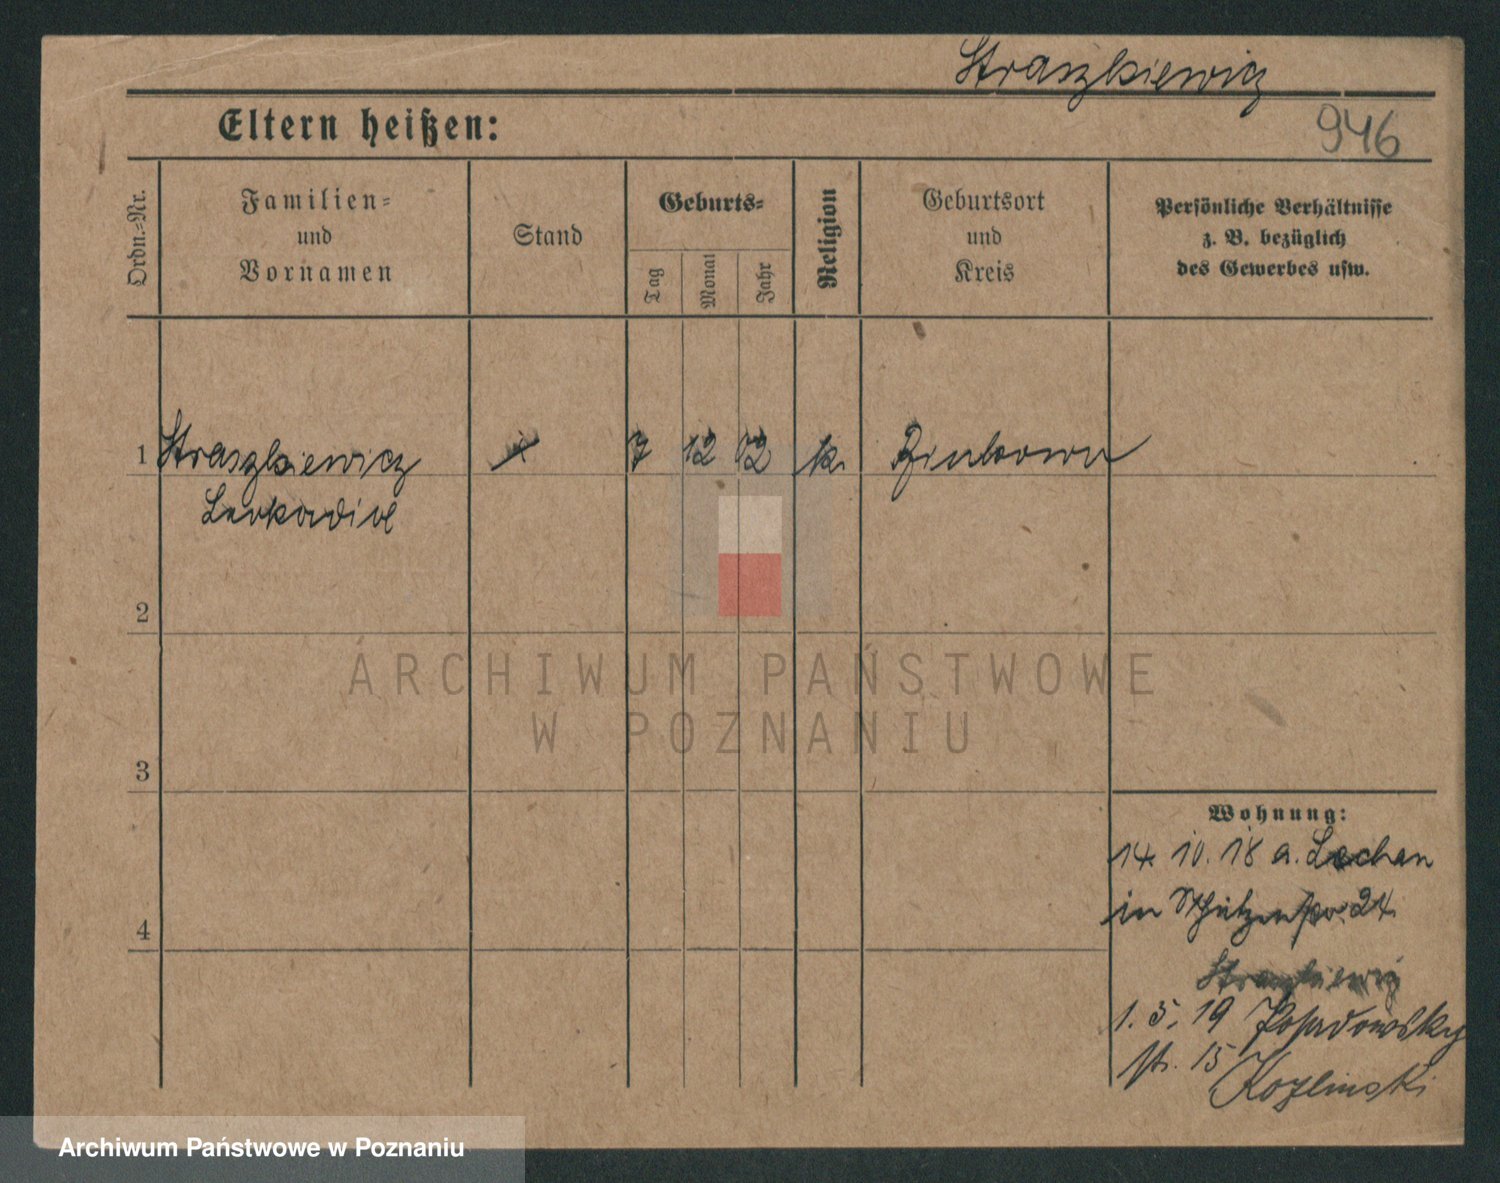 Straszkiewicz
Eltern heißen:
946
Ordn.-Nr.
Familien-
und
Vornamen
Stand
Geburts-
Tag
Monat
Jahr
Religion
Geburtsort
und
Kreis
Persönliche Verhältnisse
z. B. bezüglich
des Gewerbes usw.
1 Straszkiewicz 7 12 02 k.
Leokadie
2
3
4
Wohnung:
14 10. 18 a. Lechen
in Schützenstr. 24
Straszkiewicz
1. 5. 19 Posadowsky
str. 15
Kozlinski
ARCHIWUM PAŃSTWOWE
W POZNANIU
Archiwum Państwowe w Poznaniu